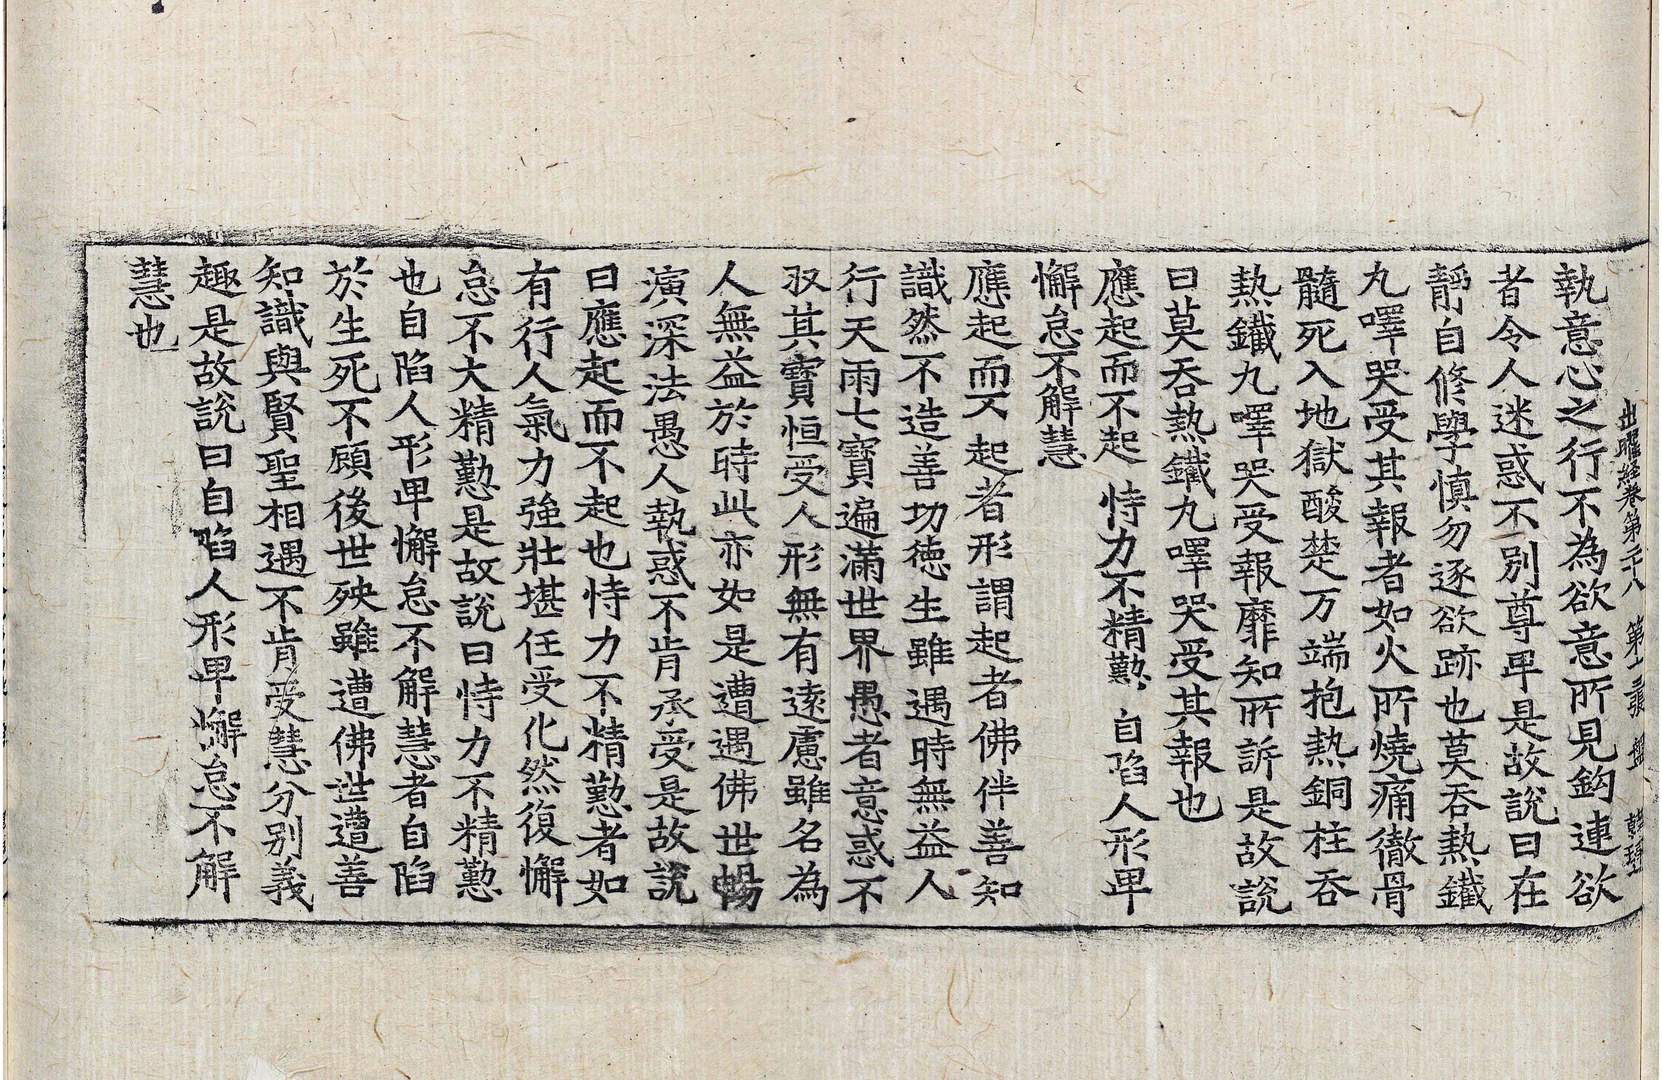 出曜經卷第二十八　第二張　盤
執意心之行不為欲意所見鈎連欲
者令人迷惑不別尊卑是故說曰在
靜自修學慎勿逐欲跡也莫吞熱鐵
九嚁哭受其報者如火所燒痛徹骨
髓死入地獄酸楚万端抱熱銅柱吞
熱鐵九嚁哭受報靡知所訴是故說
曰莫吞熱鐵九嚁哭受其報也
應起而不起　恃力不精懃　自陷人形卑
懈怠不解慧
應起而不起者形謂起者佛伴善知
識然不造善功德生雖遇時無益人
行天雨七寶遍滿世界愚者意惑不
収其寶恒受人形無有遠慮雖名為
人無益於時此亦如是遭遇佛世暢
演深法愚人執惑不肯承受是故說
曰應起而不起也恃力不精懃者如
有行人氣力強壯堪任受化然復懈
怠不大精懃是故說曰恃力不精懃
也自陷人形卑懈怠不解慧者自陷
於生死不顧後世殃雖遭佛世遭善
知識與賢聖相遇不肯受慧分別義
趣是故說曰自陷人形卑懈怠不解
慧也